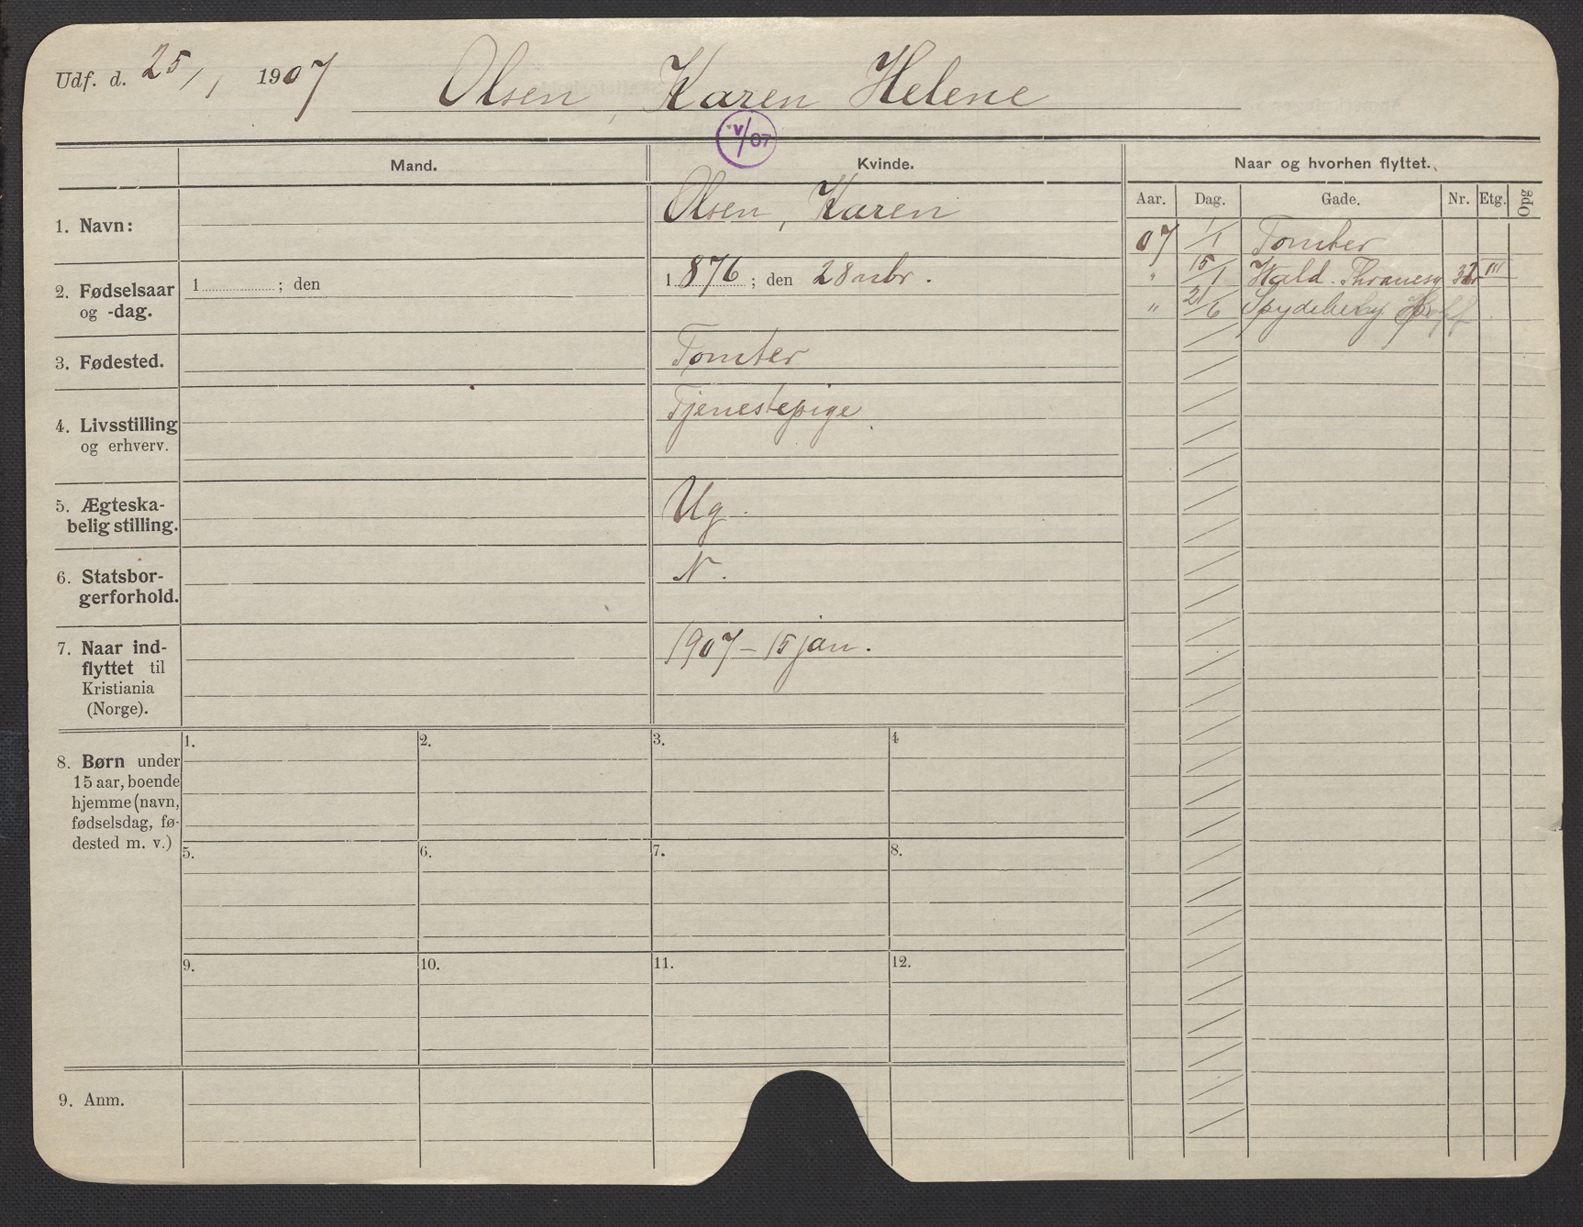 Udf. d. 25/1 1907 Olsen, Karen Helene
v/07
Mand.
Kvinde.
Naar og hvorhen flyttet.
Aar. Dag. Gade. Nr. Etg. Opg
1. Navn:
Olsen, Karen
07 1/1 Tomter
" 15/1 Wald. Thranesg III
" 21/6 Spydeberg
2. Fødselsaar
og -dag.
1 ; den
1876 ; den 28 nbr.
3. Fødested.
Tomter
4. Livsstilling
og erhverv.
Tjenestepige
5. Ægteska-
belig stilling.
Ug.
6. Statsbor-
gerforhold.
N.
7. Naar ind-
flyttet til
Kristiania
(Norge).
1907 - 15 jan.
8. Børn under
15 aar, boende
hjemme (navn,
fødselsdag, fø-
dested m. v.)
1. 2. 3. 4
5. 6. 7. 8.
9. 10. 11. 12.
9. Anm.